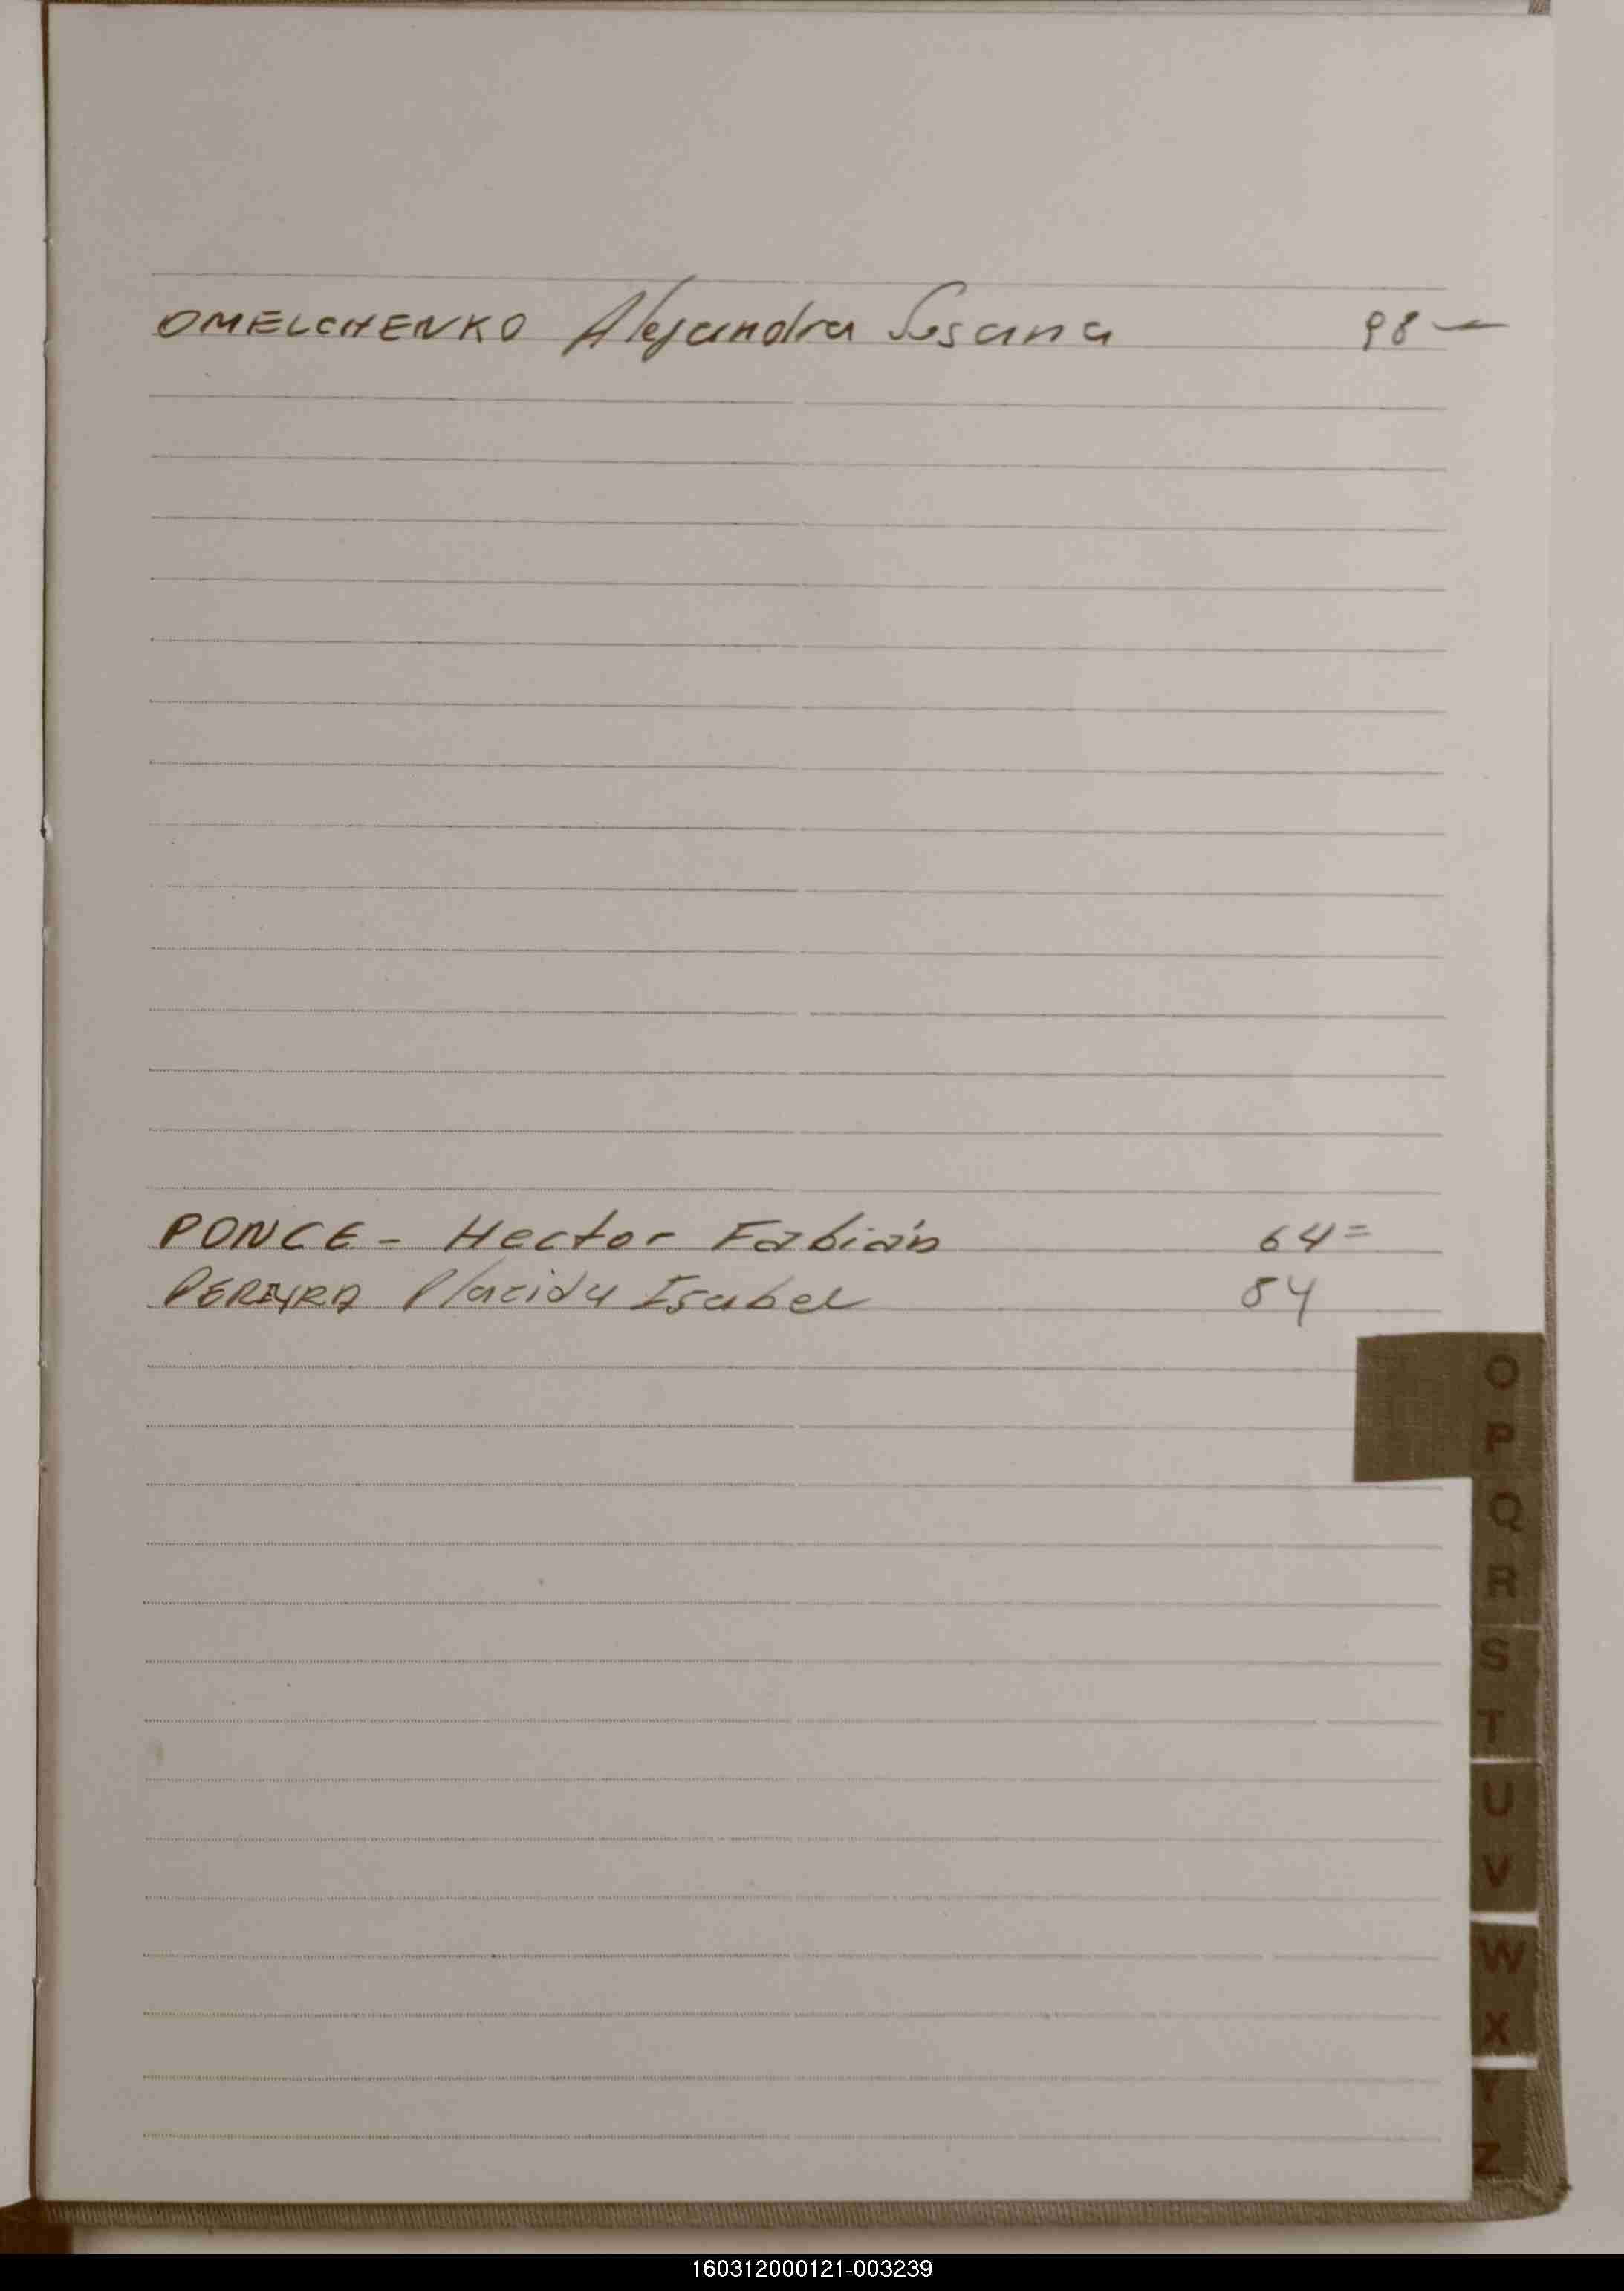 OMELCHENKO Alejandra Susana 98 —
PONCE - Hector Fabián 64 =
PEREYRA Placida Isabel 84
O
P
Q
R
S
T
U
V
W
X
Y
Z
160312000121-003239